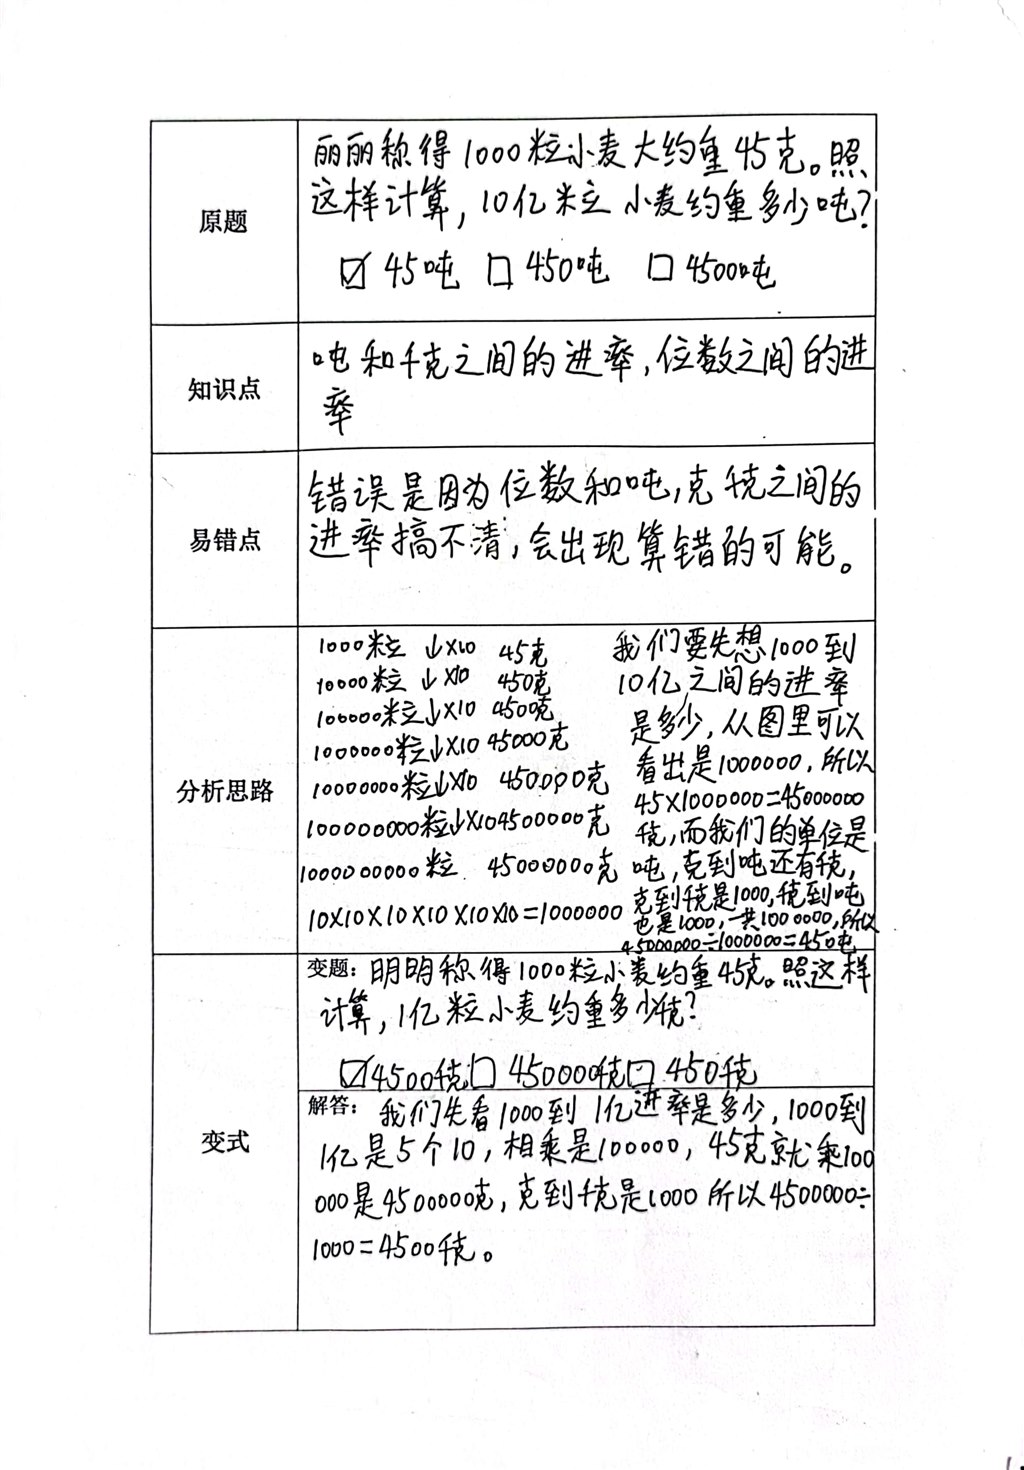 原题
丽丽称得1000粒小麦大约重45克。照
这样计算,10亿粒小麦约重多少吨?
☑45吨 □450吨 □4500吨
知识点
吨和千克之间的进率,位数之间的进
率
易错点
错误是因为位数和吨,克千克之间的
进率搞不清,会出现算错的可能。
分析思路
1000粒 ↓×10 45克
10000粒 ↓×10 450克
100000粒↓×10 4500克
1000000粒↓×10 45000克
10000000粒↓×10 450000克
100000000粒↓×10 4500000克
1000000000粒 45000000克
10×10×10×10×10×10=1000000
我们要先想1000到
10亿之间的进率
是多少,从图里可以
看出是1000000,所以
45×1000000=45000000
千克,而我们的单位是
吨,克到吨还有千克,
克到千克是1000,千克到吨
也是1000,一共1000000,所以
45000000÷1000000=45吨
变式
变题:明明称得1000粒小麦约重45克。照这样
计算,1亿粒小麦约重多少千克?
☑4500千克□450000千克□450千克
解答:我们先看1000到1亿进率是多少,1000到
1亿是5个10,相乘是100000,45克就乘100
000是4500000克,克到千克是1000所以4500000÷
1000=4500千克。